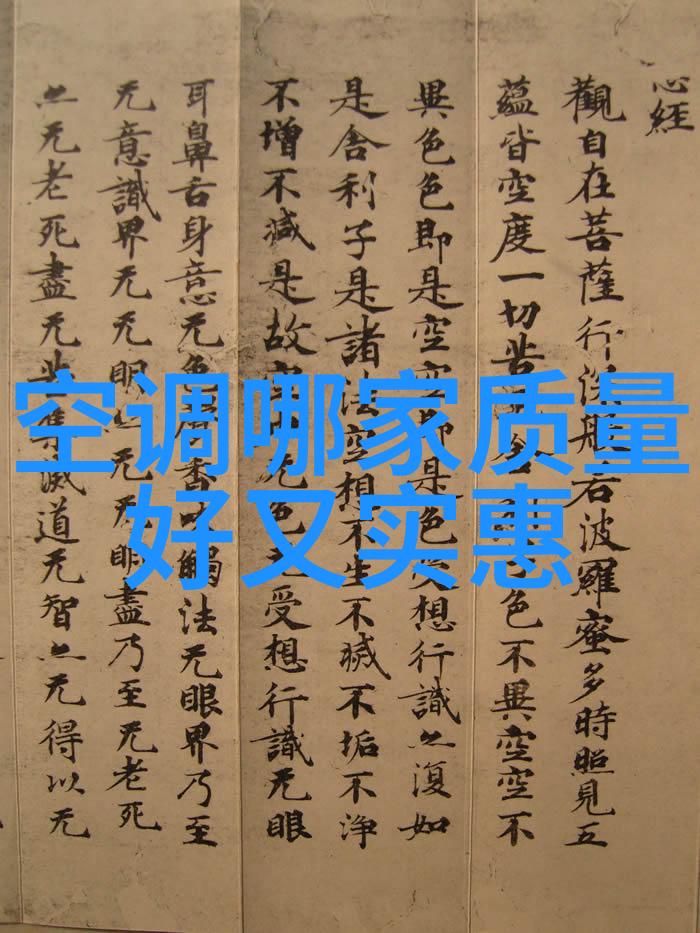 心經
觀自在菩薩行深般若波羅蜜多時照見五
蘊皆空度一切苦舍色不異空空不
異色色即是空空即是色受想行識亦復如
是舍利子是諸法空想不生不滅不垢不淨
不增不減是故空无色无受想行識无眼
耳鼻舌身意无色香味觸法无眼界乃至
无意識界无无明亦无无明盡乃至无老死
亦无老死盡无苦集滅道无智亦无得以无
空调哪家质量
好又实惠